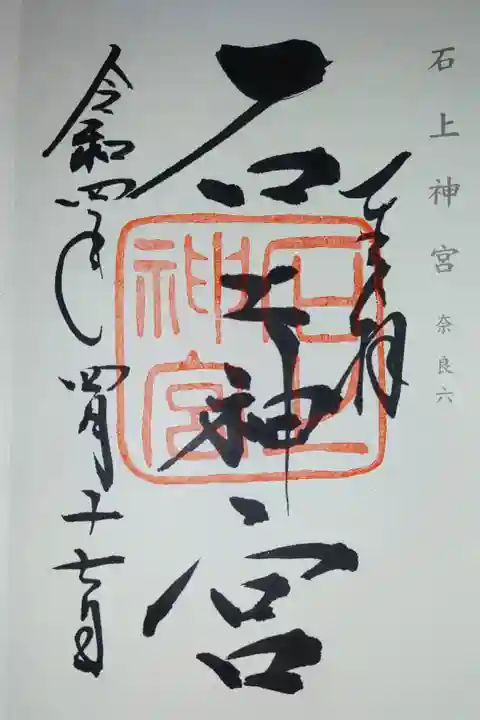 石上神宮 奈良六
奉拝
石上神宮
石上神宮
令和四年四月十七日